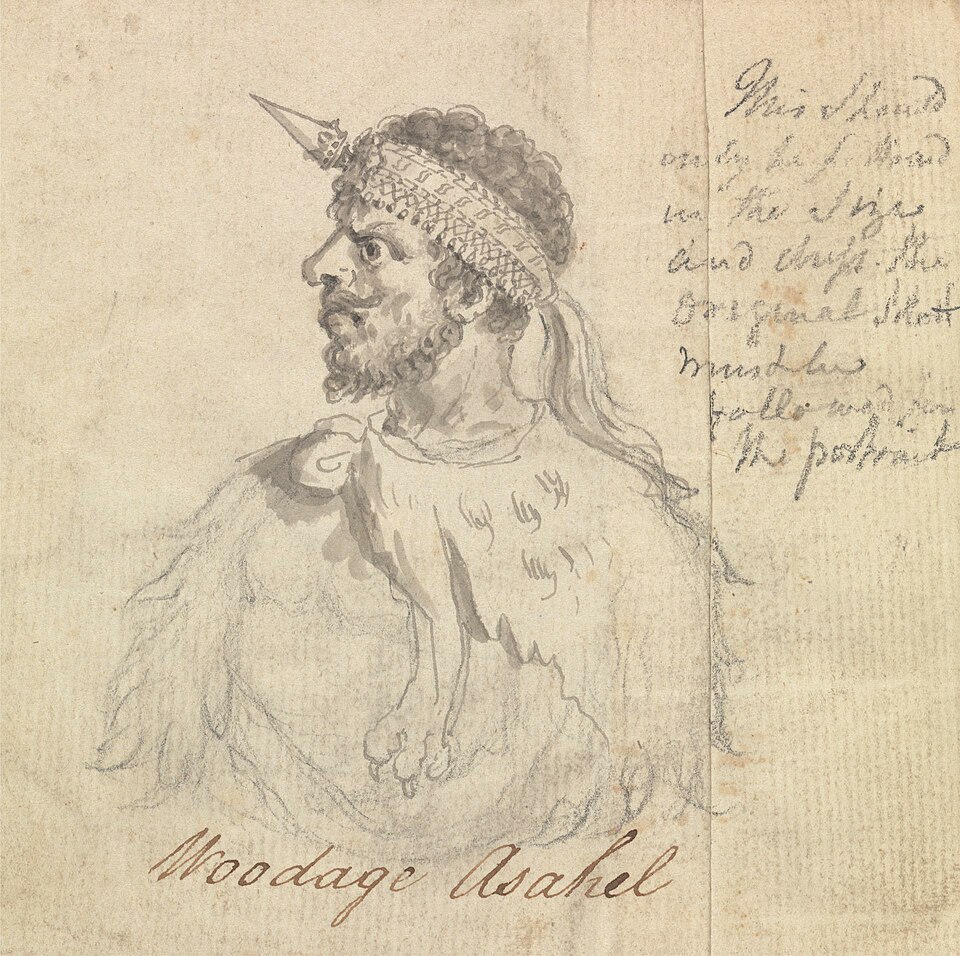 This Should
only be followed
in the Size
and dress. The
Original
must be
followed in
the portrait
Woodage Asahel